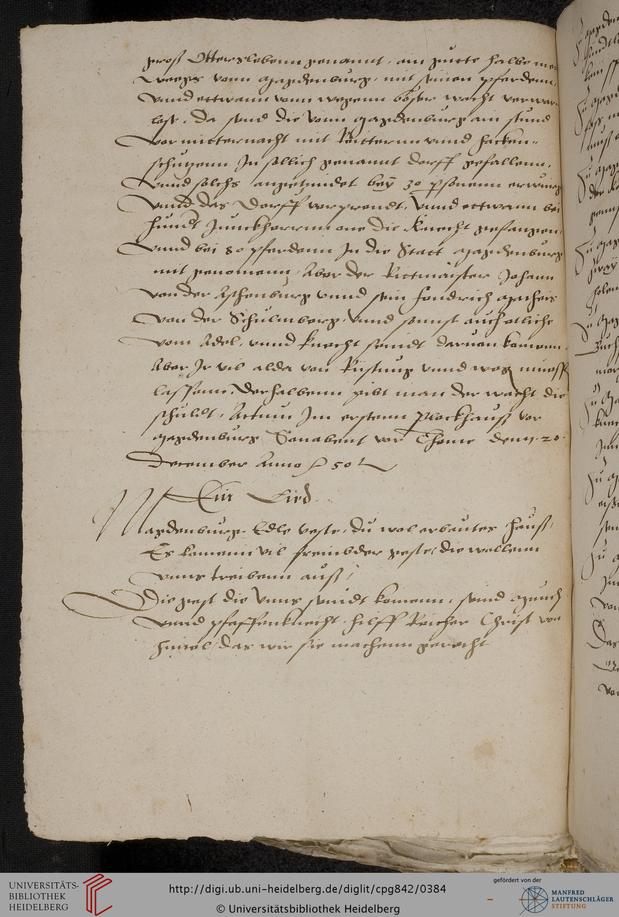 groß Otterslebenn genannt, ein gutte halbe me
weegs vonn Magdenburg, mit seinen pferdenn,
vnnd ettwann vonn wegenn böser wacht verwar
lost, da send die vonn Magdenburg ein stund
vor mitternacht mit Reitternn vnnd hacken-
schutzenn In sollich genannt dorff gefallenn,
vnnd solchs angetzindet bey 30 personenn erwürg
vnnd das dorff verprendt, vnnd ettwann bei
hundt Junckherrnn one die knecht gefangen
vnnd bei 80 pferdenn In die Statt Magdenburg
mit genomenn, Aber der Rittmaister Johann
von der Aschenburg vnnd sein fendrich
von der Schulnborg, vnnd sonnst auch etliche
vom Adel, vnnd knecht sendt daruon komenn
Aber Ir vil alda von Rüstung vnnd weg muess
lassenn, derhalbenn gibt man der wacht die
schuldt, Actum Im erstenn Plockhauß vor
Magdenburg Sonabent vor Thome denn 20
December Anno 50
Ein Lied
Magdenburg Edle veste, du wol erbautes hauß,
Es komenn vil frembder geste, die wollenn
vnns treibenn auß,
Die gest die vnns seindt komenn, seind Munch
vnnd pfaffenknecht, hilff Reicher Christ von
himel das wir sie machenn gerecht
UNIVERSITÄTS-
BIBLIOTHEK
HEIDELBERG
http://digi.ub.uni-heidelberg.de/diglit/cpg842/0384
© Universitätsbibliothek Heidelberg
gefördert von der
MANFRED
LAUTENSCHLÄGER
STIFTUNG